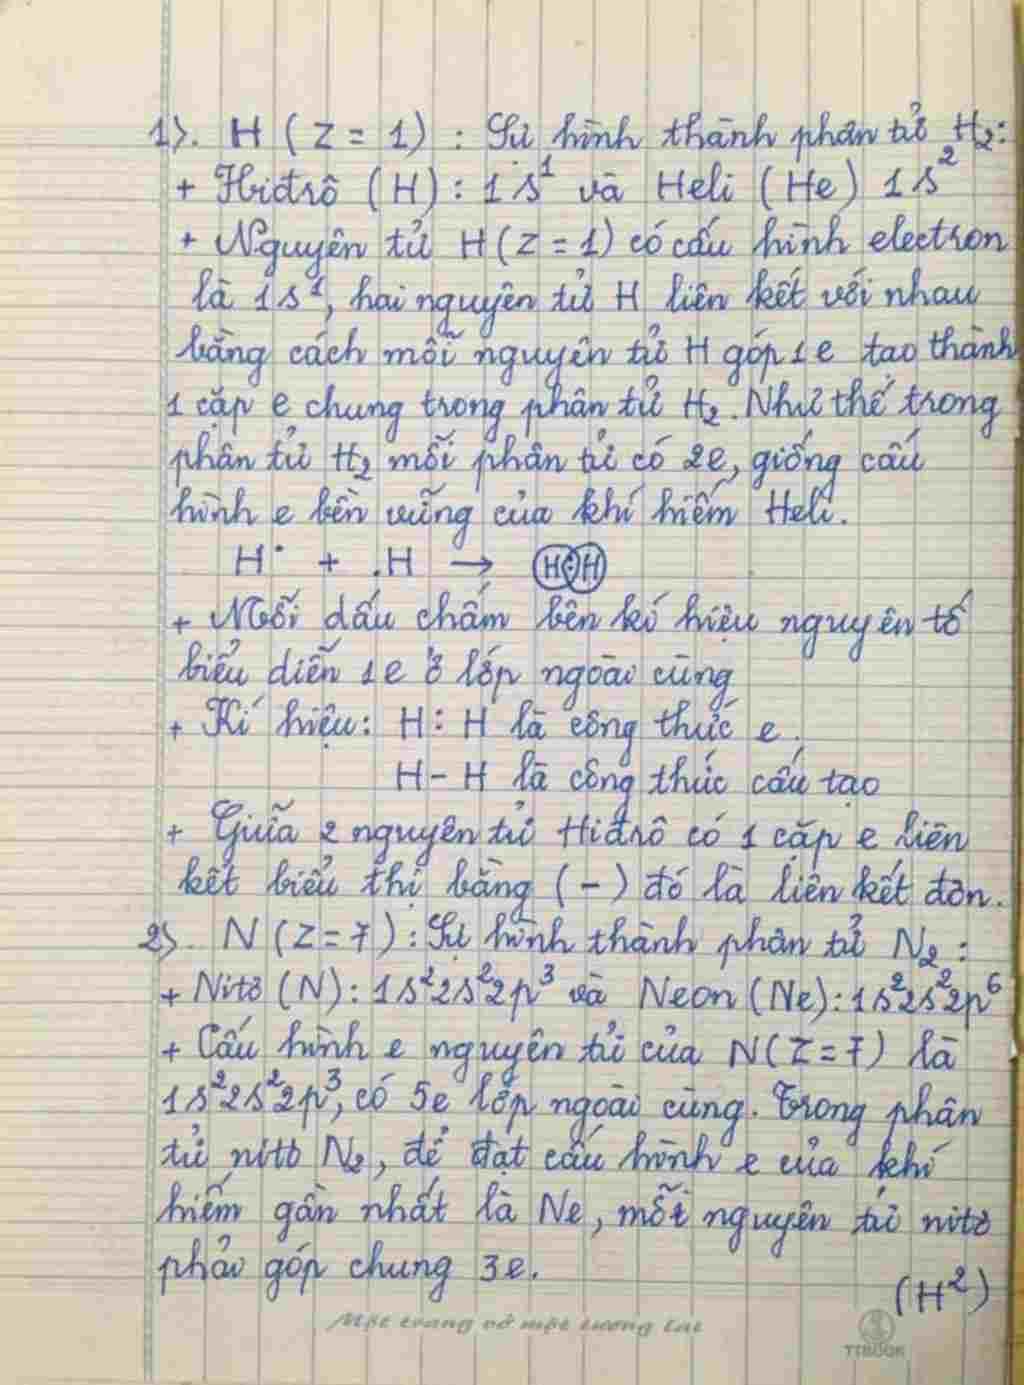 1). H (Z = 1) : Sự hình thành phân tử H₂:
+ Hiđrô (H) : 1s¹ và Heli (He) 1s²
+ Nguyên tử H (Z = 1) có cấu hình electron
là 1s¹, hai nguyên tử H liên kết với nhau
bằng cách mỗi nguyên tử H góp 1e tạo thành
1 cặp e chung trong phân tử H₂. Như thế trong
phân tử H₂ mỗi phân tử có 2e, giống cấu
hình e bền vững của khí hiếm Heli.
H· + ·H → H:H
+ Mỗi dấu chấm bên kí hiệu nguyên tố
biểu diễn 1e ở lớp ngoài cùng
+ Kí hiệu: H : H là công thức e.
H – H là công thức cấu tạo
+ Giữa 2 nguyên tử Hiđrô có 1 cặp e liên
kết biểu thị bằng (–) đó là liên kết đơn.
2). N (Z = 7) : Sự hình thành phân tử N₂ :
+ Nitơ (N) : 1s²2s²2p³ và Neon (Ne) : 1s²2s²2p⁶
+ Cấu hình e nguyên tử của N (Z = 7) là
1s²2s²2p³, có 5e lớp ngoài cùng. Trong phân
tử nitơ N₂, để đạt cấu hình e của khí
hiếm gần nhất là Ne, mỗi nguyên tử nitơ
phải góp chung 3e.
(H²)
Một trang vở một tương lai
TTBOOK